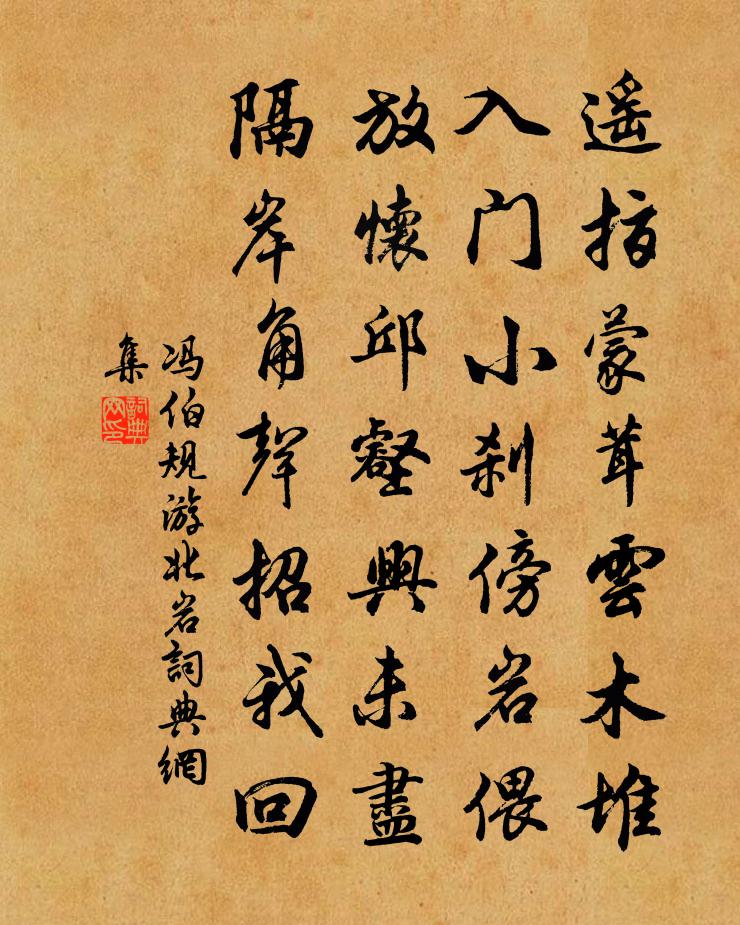 遥指蒙茸雲木堆
入门小刹傍岩偎
放懷邱壑興未盡
隔岸角聲招我回
冯伯规游北岩詞典網
集
詞典
网印